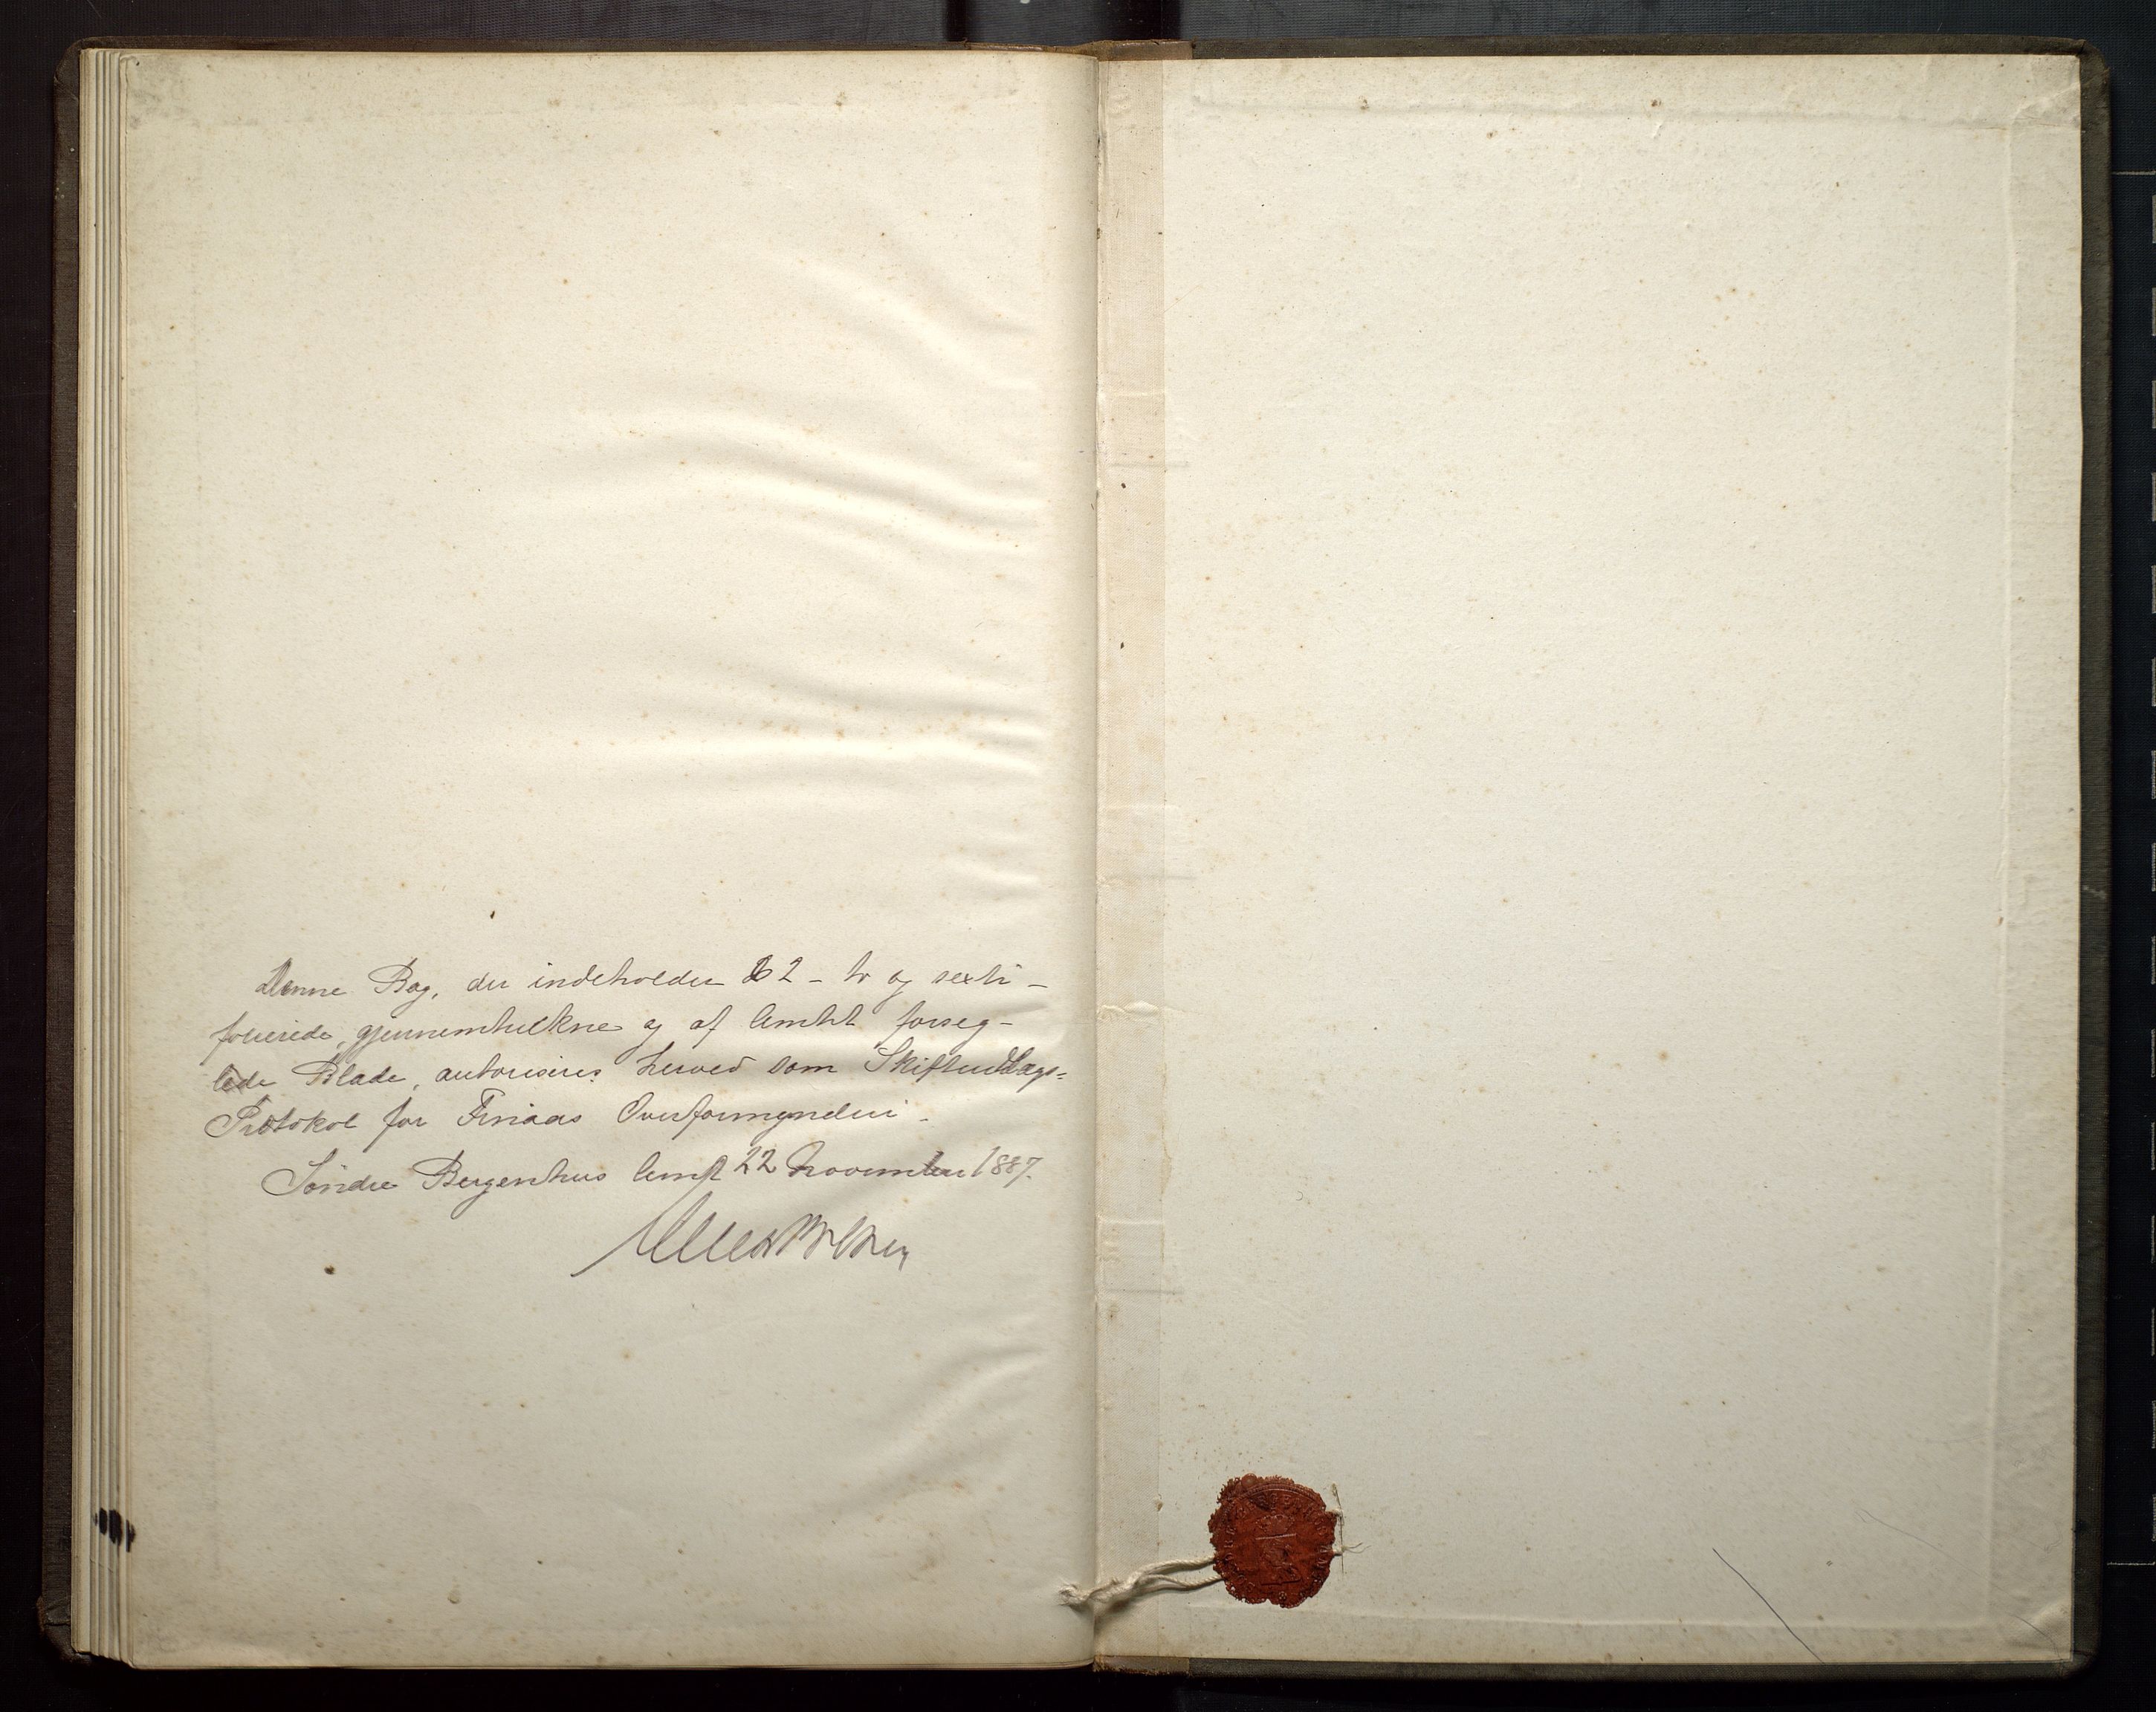 Denne Bog, der indeholder 62 - to og sexti -
folierede, gjennemtrukne og af Amtet forseg-
lede Blade, autoriseres herved som Skifteudlægs-
Protokol for Finaas Overformynderi.
Söndre Bergenhus Amt 22 November 1887.